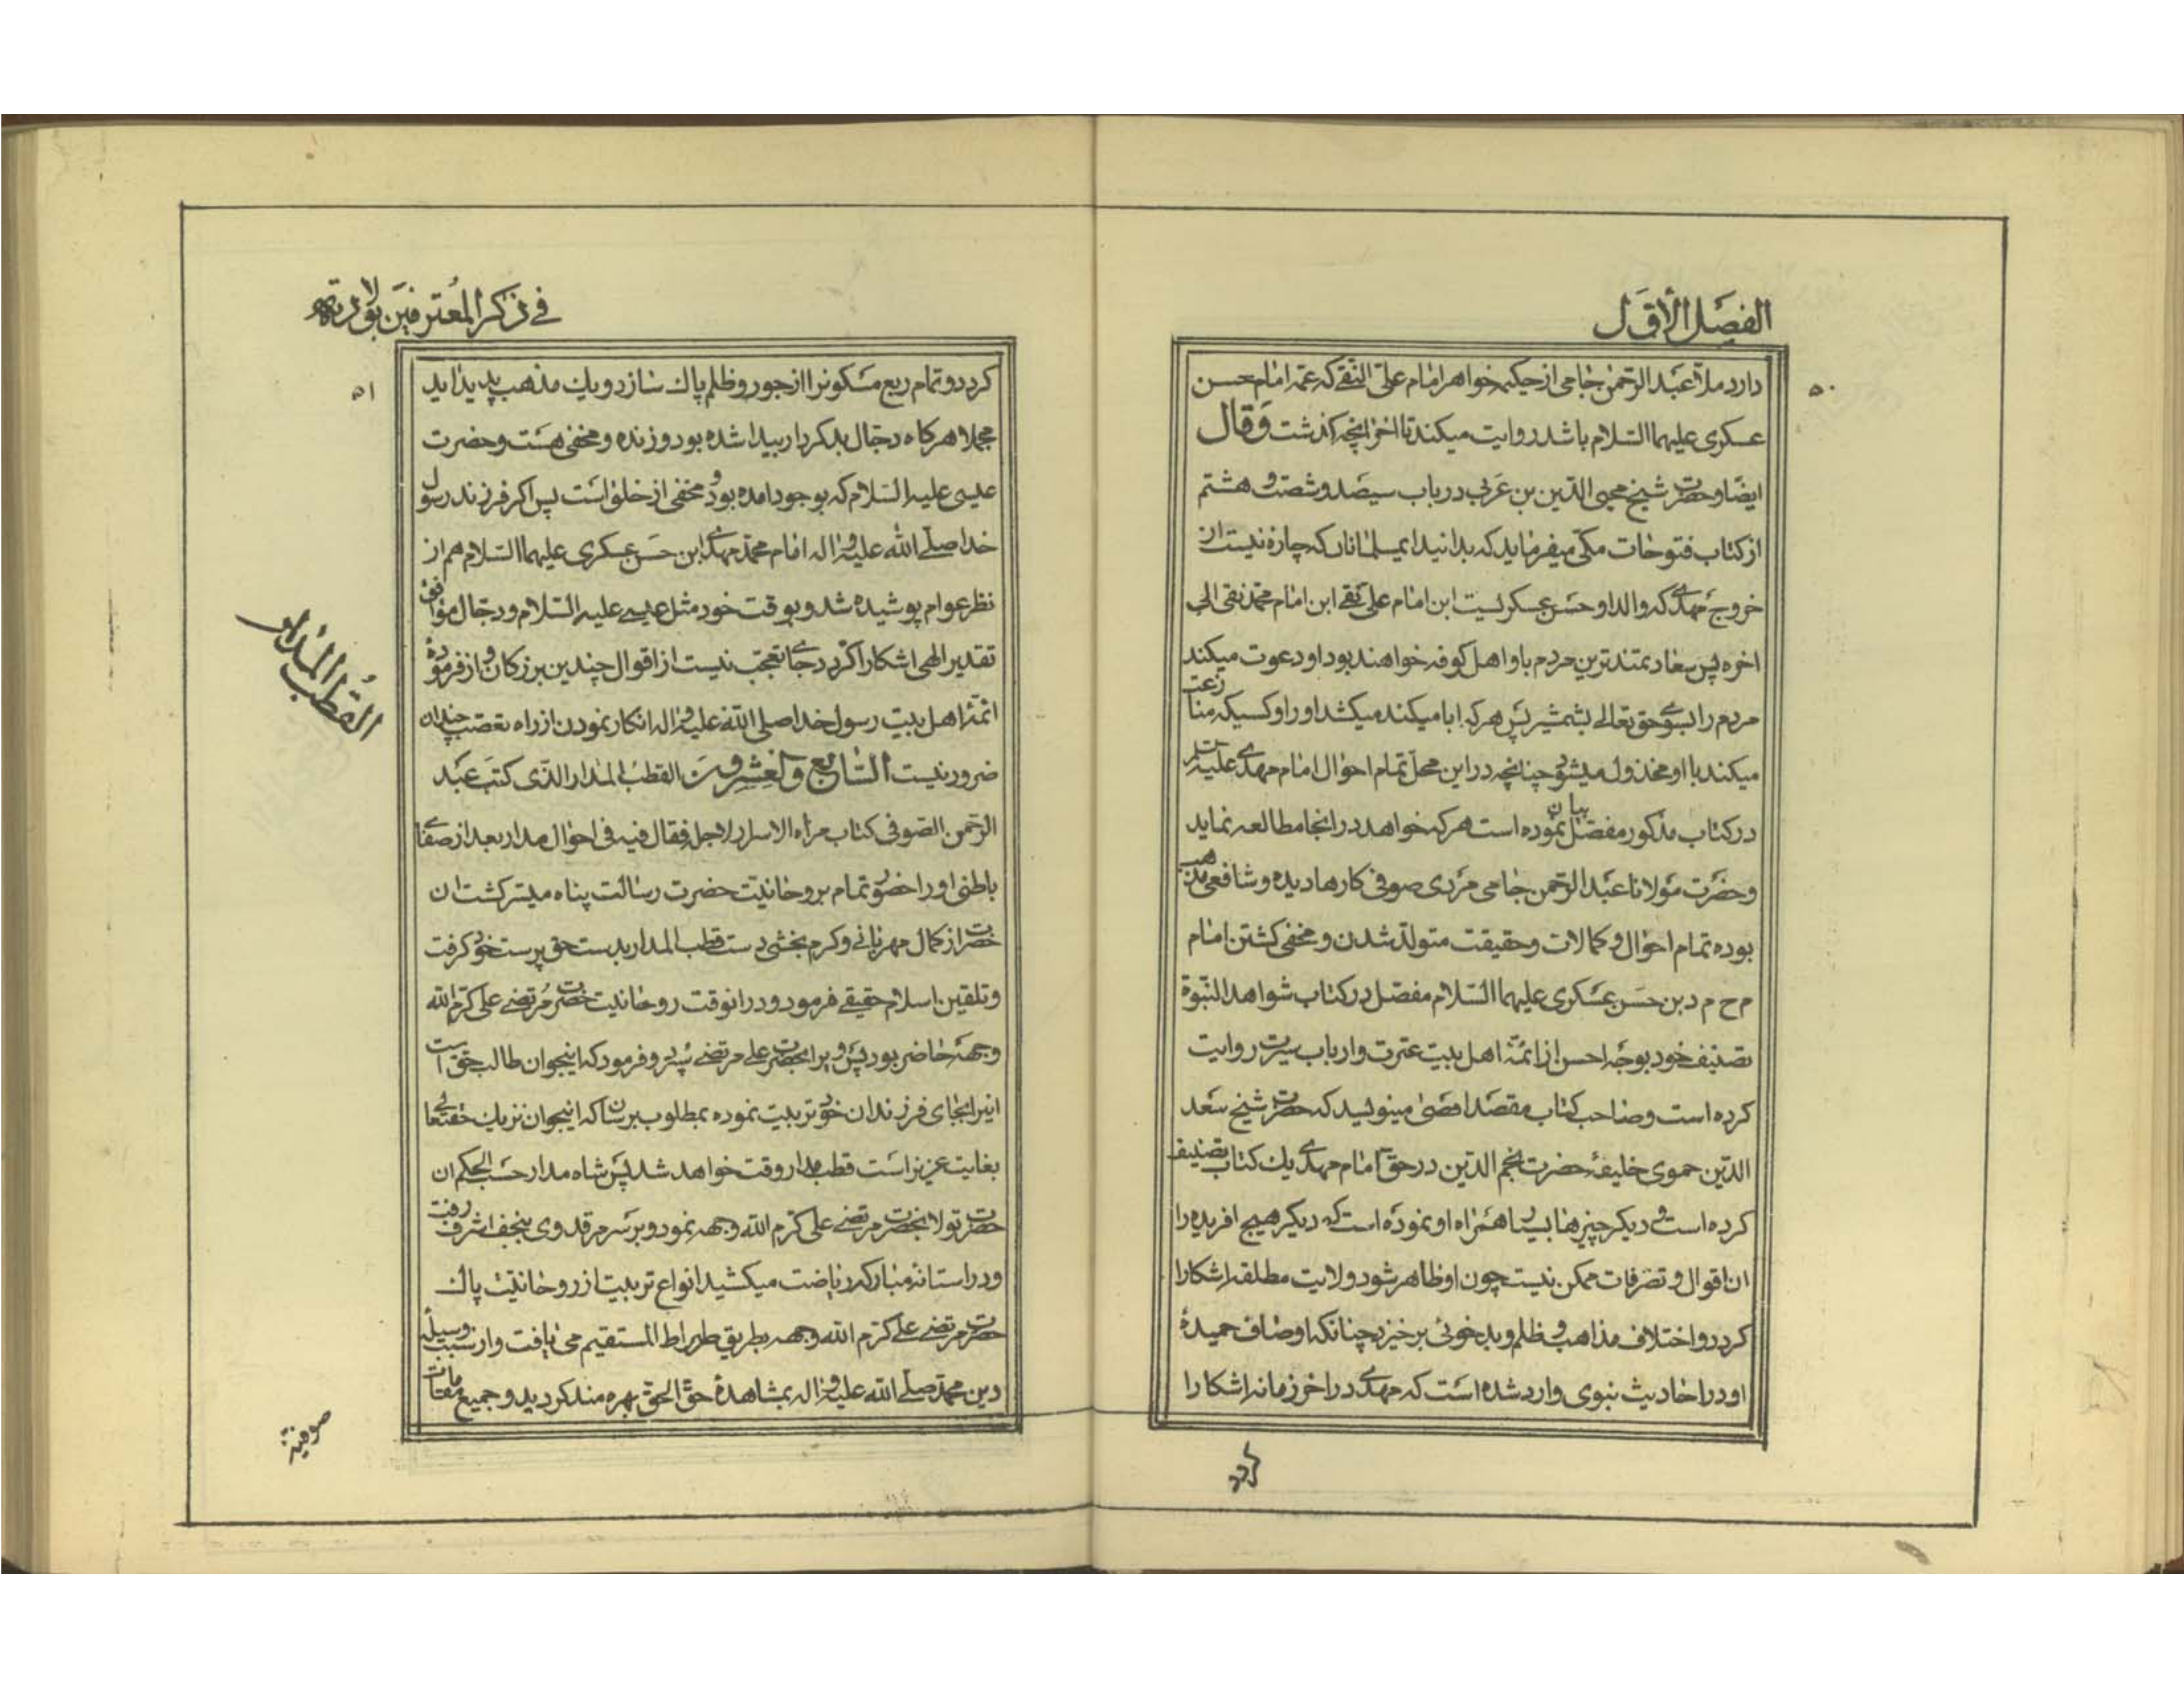 الفصل الأول
۵۰
دارد ملا عبد الرحمن جامی از حکیمه خواهر امام علی النقی که عمه امام حسن
عسکری علیهما السلام باشد روایت میکند تا اخر انچه گذشت وقال
ایضا و حضرت شیخ محیی الدین بن عربی در باب سیصد و شصت و هشتم
از کتاب فتوحات مکی میفرماید که بدانید ایمسلمانان که چاره نیست از
خروج مهدی که والد او حسن عسکریست ابن امام علی نقی ابن امام محمد تقی الی
اخره پس سعادتمندترین مردم باو اهل کوفه خواهند بود او دعوت میکند
مردم را بسوی حق تعالی بشمشیر پس هر که ابا میکند میکشد او را و کسیکه منازعت
میکند با او مخذول میشود چنانچه در این محل تمام احوال امام مهدی علیه السلام
در کتاب مذکور مفصل بیان نموده است هر که خواهد در انجا مطالعه نماید
و حضرت مولانا عبد الرحمن جامی مردی صوفی کارها دیده و شافعی مذهب
بوده تمام احوال و کمالات و حقیقت متولد شدن و مخفی گشتن امام
م ح م د بن حسن عسکری علیهما السلام مفصل در کتاب شواهد النبوة
تصنیف خود بوجه احسن از ائمه اهل بیت عترت و ارباب سیرت روایت
کرده است و صاحب کتاب مقصد اقصی مینویسد که حضرت شیخ سعد
الدین حموی خلیفه حضرت نجم الدین در حق امام مهدی یک کتاب تصنیف
کرده است و دیگر چیزها بسیار همراه او نموده است که دیگر هیچ افریده را
ان اقوال و تصرفات ممکن نیست چون او ظاهر شود ولایت مطلقه اشکارا
گردد و اختلاف مذاهب و ظلم و بد خوئی برخیزد چنانکه اوصاف حمیده
او در احادیث نبوی وارد شده است که مهدی در اخر زمانه اشکارا
گردد
في ذكر المعترفين بولادته
۵۱
گردد و تمام ربع مسکونرا از جور و ظلم پاک سازد و یک مذهب پدید اید
مجملا هرگاه دجال بدکردار پیدا شده بود و زنده و مخفی هست و حضرت
عیسی علیه السلام که بوجود امده بود و مخفی از خلق است پس اگر فرزند رسول
خدا صلی الله علیه و اله امام محمد مهدی ابن حسن عسکری علیهما السلام هم از
نظر عوام پوشیده شد و بوقت خود مثل عیسی علیه السلام و دجال موافق
تقدیر الهی اشکارا گردد جای تعجب نیست از اقوال چندین بزرگان و از فرموده
ائمه اهل بیت رسول خدا صلی الله علیه و اله انکار نمودن از راه تعصب چندان
ضرور نیست السابع والعشرون القطب المدار الذی کتب عبد
الرحمن الصوفی کتاب مراه الاسرار لاجله فقال فیه فی احوال مدار بعد از صفای
باطنی او را حضور تمام بروحانیت حضرت رسالت پناه میسر گشت ان
حضرت از کمال مهربانی و کرم بخشی دست قطب المدار بدست حق پرست خود گرفت
و تلقین اسلام حقیقی فرمود و در انوقت روحانیت حضرت مرتضی علی کرم الله
وجهه حاضر بود پس ویرا بحضرت علی مرتضی سپرد و فرمود که اینجوان طالب حق است
اینرا بجای فرزندان خود تربیت نموده بمطلوب برسان که اینجوان نزدیک حقتعالی
بغایت عزیز است قطب مدار وقت خواهد شد پس شاه مدار حسب الحکم ان
حضرت تولا بحضرت مرتضی علی کرم الله وجهه نمود و بر سر مرقد وی بنجف اشرف رفت
و در استانه مبارکه ریاضت میکشید انواع تربیت از روحانیت پاک
حضرت مرتضی علی کرم الله وجهه بطریق صراط المستقیم می یافت و از سبب وسیله
دین محمد صلی الله علیه و اله بمشاهده حق الحق بهره مند گردید و جمیع مقامات
القطب المدار
صوفیه